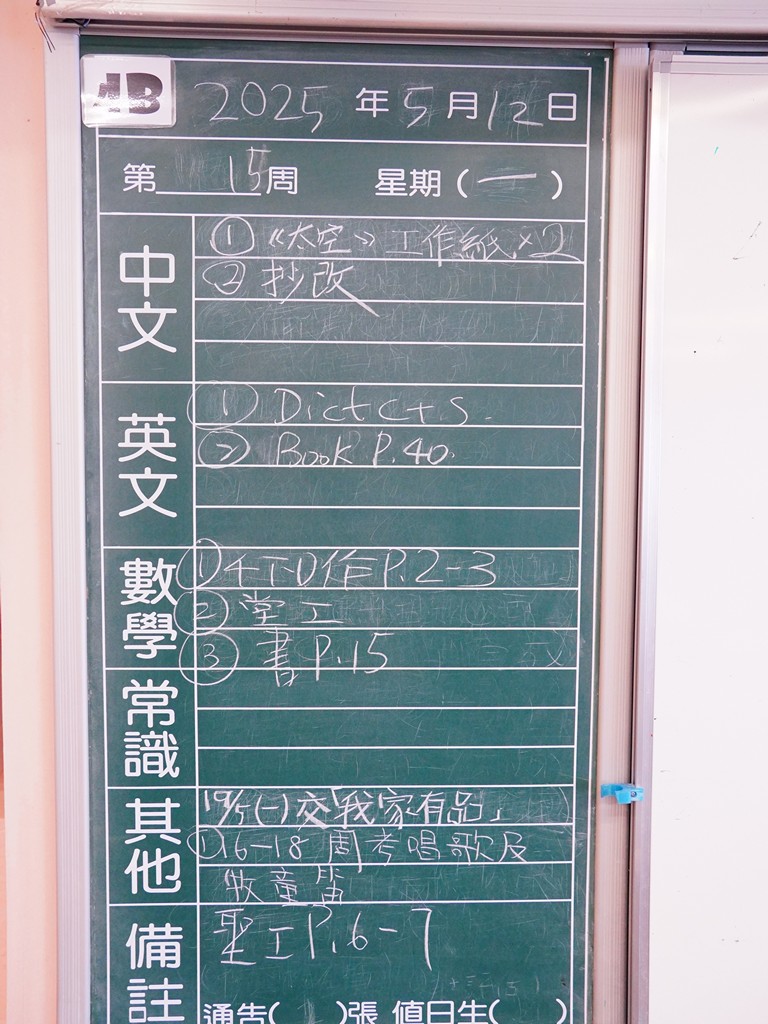 4B 2025 年 5 月 12 日
第 15 周 星期 (一)
中文
① 《太空》工作紙×2
② 抄改
英文
① Dict C+S.
② Book P.40.
數學
① 4下D作P.2-3
② 堂工
③ 書P.15
常識
其他
19/5(一)交「我家有品」
① 16-18 周考唱歌及
牧童笛
備註
聖工P.6-7
通告( )張 值日生( )